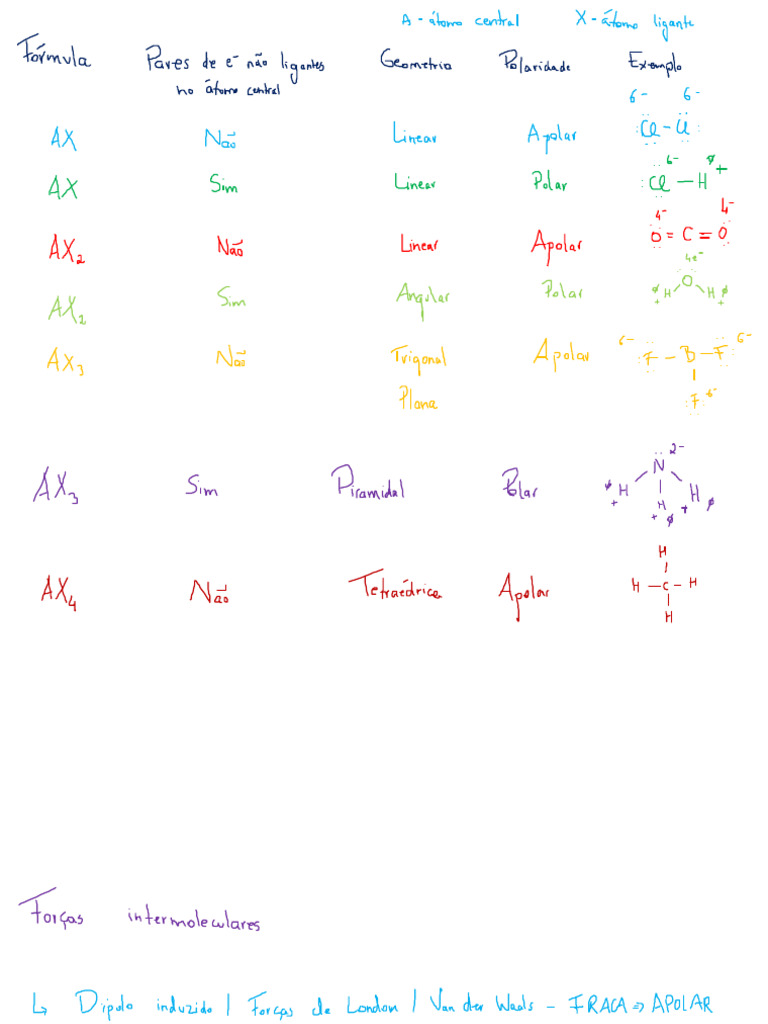 A - átomo central X - átomo ligante
Fórmula Pares de e⁻ não ligantes Geometria Polaridade Exemplo
no átomo central
6⁻ 6⁻
AX Não Linear Apolar Cl - Cl
6⁻ ø +
AX Sim Linear Polar Cl — H
4⁻ 4⁻
AX₂ Não Linear Apolar O = C = O
4e⁻
AX₂ Sim Angular Polar ø H O H ø
+ +
6⁻ 6⁻
AX₃ Não Trigonal Apolar F - B - F
Plana F 6⁻
2⁻
AX₃ Sim Piramidal Polar ø H N H ø
+ H +
+ ø
H
AX₄ Não Tetraédrica Apolar H - C - H
H
Forças intermoleculares
↳ Dipolo induzido / Forças de London / Van der Waals - FRACA ⇒ APOLAR